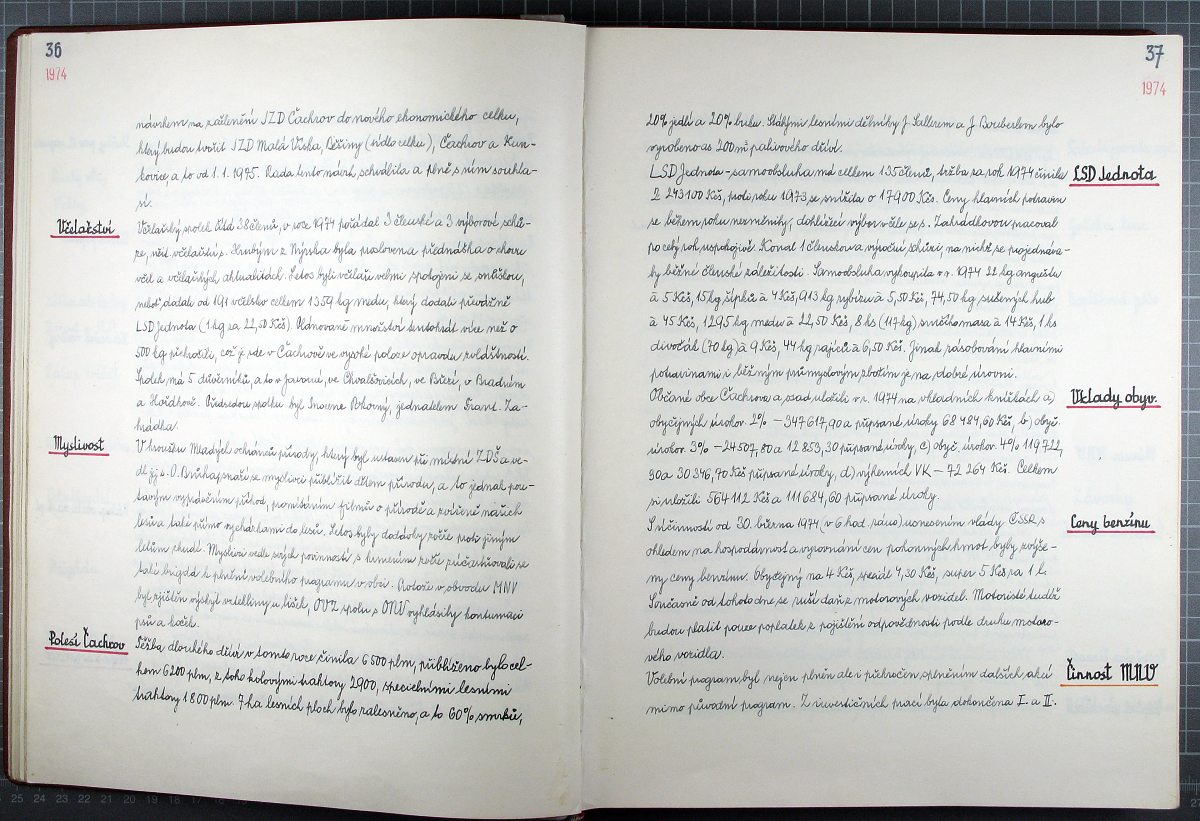 36
1974
návrhem na začlenění JZD Čachrov do nového ekonomického celku,
který budou tvořit JZD Malá Víska, Běšiny (sídlo celku), Čachrov a Kun-
kovice, a to od 1. 1. 1975. Rada tento návrh schválila a plně s ním souhla-
sí.
Včelařství
Včelařský spolek čítá 38 členů, v roce 1974 pořádal 3 členské a 3 výborové schů-
ze, učit. včelařství s. Hrubým z Nýrska byla proslovena přednáška o chovu
včel a včelařských aktualitách. Letos byli včelaři velmi spokojeni se snůškou,
neboť dodali od 191 včelstev celkem 1359 kg medu, který dodali převážně
LSD Jednota (1 kg za 22,50 Kčs). Plánované množství tentokrát více než o
500 kg překročili, což je zde v Čachrově ve vysoké poloze opravdu zvláštností.
Spolek má 5 důvěrníků, a to v Javorné, ve Chvalšovicích, ve Bučí, v Bradném
a Hořákově. Předsedou spolku byl Inocenc Pokorný, jednatelem Frant. Za-
hrádka.
Myslivost
V kroužku Mladých ochránců přírody, který byl ustaven při místní ZDŠ a ve-
dl jej s. O. Brůha, snaží se myslivci přiblížit dětem přírodu, a to jednak pou-
tavým vyprávěním příhod, promítáním filmů o přírodě a zvířeně našich
lesů a také přímo vycházkami do lesů. Letos byly dodávky zvěře proti jiným
letům chudé. Myslivci vedle svých povinností s krmením zvěře zúčastňovali se
také brigád k plnění volebního programu v obci. Protože v obvodu MNV
byl zjištěn výskyt vztekliny u lišek, OVZ spolu s ONV vyhlásily kontumaci
psů a koček.
Polesí Čachrov
Těžba dlouhého dříví v tomto roce činila 6500 plm, přiblíženo bylo cel-
kem 6200 plm, z toho kolovými traktory 2900, speciálními lesními
traktory 1800 plm. 7 ha lesních ploch bylo zalesněno, a to 60% smrků,
37
1974
20% jedlí a 20% buku. Stálými lesními dělníky J. Sallerem a J. Bouberlem bylo
vyrobeno as 200 m³ palivového dříví.
LSD Jednota
LSD Jednota - samoobsluha má celkem 135 členů, tržba za rok 1974 činila
2 243 100 Kčs, proti roku 1973 se snížila o 17 900 Kčs. Ceny hlavních potravin
se během roku nezměnily, dohlížecí výbor v čele se s. Zahrádkovou pracoval
po celý rok uspokojivě. Konal 1 členskou výroční schůzi, na nichž se projednáva-
ly běžné členské záležitosti. Samoobsluha vykoupila v r. 1974 22 kg angreštu
à 5 Kčs, 15 kg šípků à 4 Kčs, 913 kg rybízu à 5,50 Kčs, 74,50 kg sušených hub
à 45 Kčs, 1295 kg medu à 22,50 Kčs, 8 ks (117 kg) srnčího masa à 14 Kčs, 1 ks
divočák (70 kg) à 9 Kčs, 44 kg zajíců à 6,50 Kčs. Jinak zásobování hlavními
potravinami i běžným průmyslovým zbožím je na dobré úrovni.
Vklady obyv.
Občané obce Čachrova a osad uložili v r. 1974 na vkladních knížkách a)
obyčejných úrokov. 2% - 347 617,90 a připsané úroky 68 484,60 Kčs, b) obyč.
úrokov. 3% - 24 507,80 a 12 853,30 připsané úroky, c) obyč. úrokov. 4% 119 722,
30 a 30 346,70 Kčs připsané úroky, d) výherních VK - 72 264 Kčs. Celkem
si uložili 564 112 Kčs a 111 684,60 připsané úroky.
Ceny benzínu
S účinností od 30. března 1974 (v 6 hod. ráno) usnesením vlády ČSSR s
ohledem na hospodárnost a vyrovnání cen pohonných hmot byly zvýše-
ny ceny benzínu. Obyčejný na 4 Kčs, speciál 4,30 Kčs, super 5 Kčs za 1 l.
Současně od tohoto dne se ruší daň z motorových vozidel. Motoristé tudíž
budou platit pouze poplatek z pojištění odpovědnosti podle druhu motoro-
vého vozidla.
Činnost MNV
Volební program byl nejen plněn ale i překročen splněním dalších akcí
mimo původní program. Z investičních prací byla dokončena I. a II.